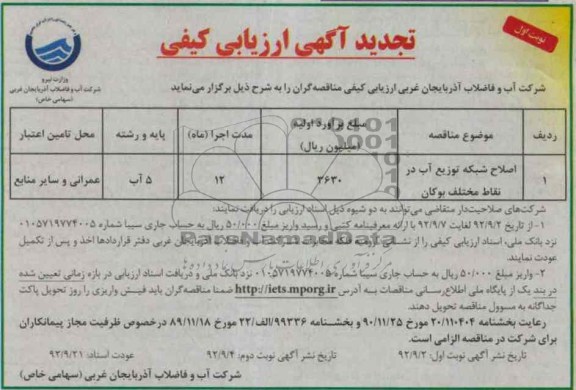 نوبت اول
تجدید آگهی ارزیابی کیفی
وزارت نیرو
شرکت آب و فاضلاب آذربایجان غربی
(سهامی خاص)
شرکت آب و فاضلاب آذربایجان غربی ارزیابی کیفی مناقصه‌گران را به شرح ذیل برگزار می‌نماید
ردیف موضوع مناقصه مبلغ برآورد اولیه (میلیون ریال) مدت اجرا (ماه) پایه و رشته محل تامین اعتبار
۱ اصلاح شبکه توزیع آب در نقاط مختلف بوکان ۳۶۳۰ ۱۲ ۵ آب عمرانی و سایر منابع
شرکت‌های صلاحیت‌دار متقاضی می‌توانند به دو شیوه ذیل اسناد ارزیابی را دریافت نمایند:
۱- از تاریخ ۹۲/۹/۲ لغایت ۹۲/۹/۷ با ارائه معرفینامه کتبی و رسید واریز مبلغ ۵۰/۰۰۰ ریال به حساب جاری سیبا شماره ۰۱۰۵۷۱۹۷۷۴۰۰۵
نزد بانک ملی، اسناد ارزیابی کیفی را از نشانی غربی دفتر قراردادها اخذ و پس از تکمیل
عودت نمایند.
۲- واریز مبلغ ۵۰/۰۰۰ ریال به حساب جاری سیبا شماره ۰۱۰۵۷۱۹۷۷۴۰۰۵ نزد بانک ملی و دریافت اسناد ارزیابی در بازه زمانی تعیین شده
در بند یک از پایگاه ملی اطلاع‌رسانی مناقصات به آدرس http://iets.mporg.ir ضمنا مناقصه‌گران باید فیش واریزی را روز تحویل پاکت
جداگانه به مسوول مناقصه تحویل دهند.
رعایت بخشنامه ۲۰/۱۱۰۴۰۴ مورخ ۹۰/۱۱/۲۵ و بخشنامه ۹۹۳۳۶/الف/۲۲ مورخ ۸۹/۱۱/۱۸ درخصوص ظرفیت مجاز پیمانکاران
برای شرکت در مناقصه الزامی است.
تاریخ نشر آگهی نوبت اول: ۹۲/۹/۲ تاریخ نشر آگهی نوبت دوم: ۹۲/۹/۴ عودت اسناد: ۹۲/۹/۲۱
شرکت آب و فاضلاب آذربایجان غربی (سهامی خاص)
ParsNamadData